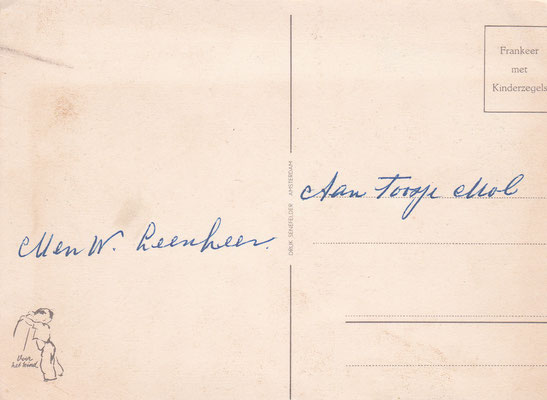 Frankeer
met
Kinderzegels
Aan Toosje Mol
DRUK SENEFELDER AMSTERDAM
Men W. Leenheer.
Voor
het kind